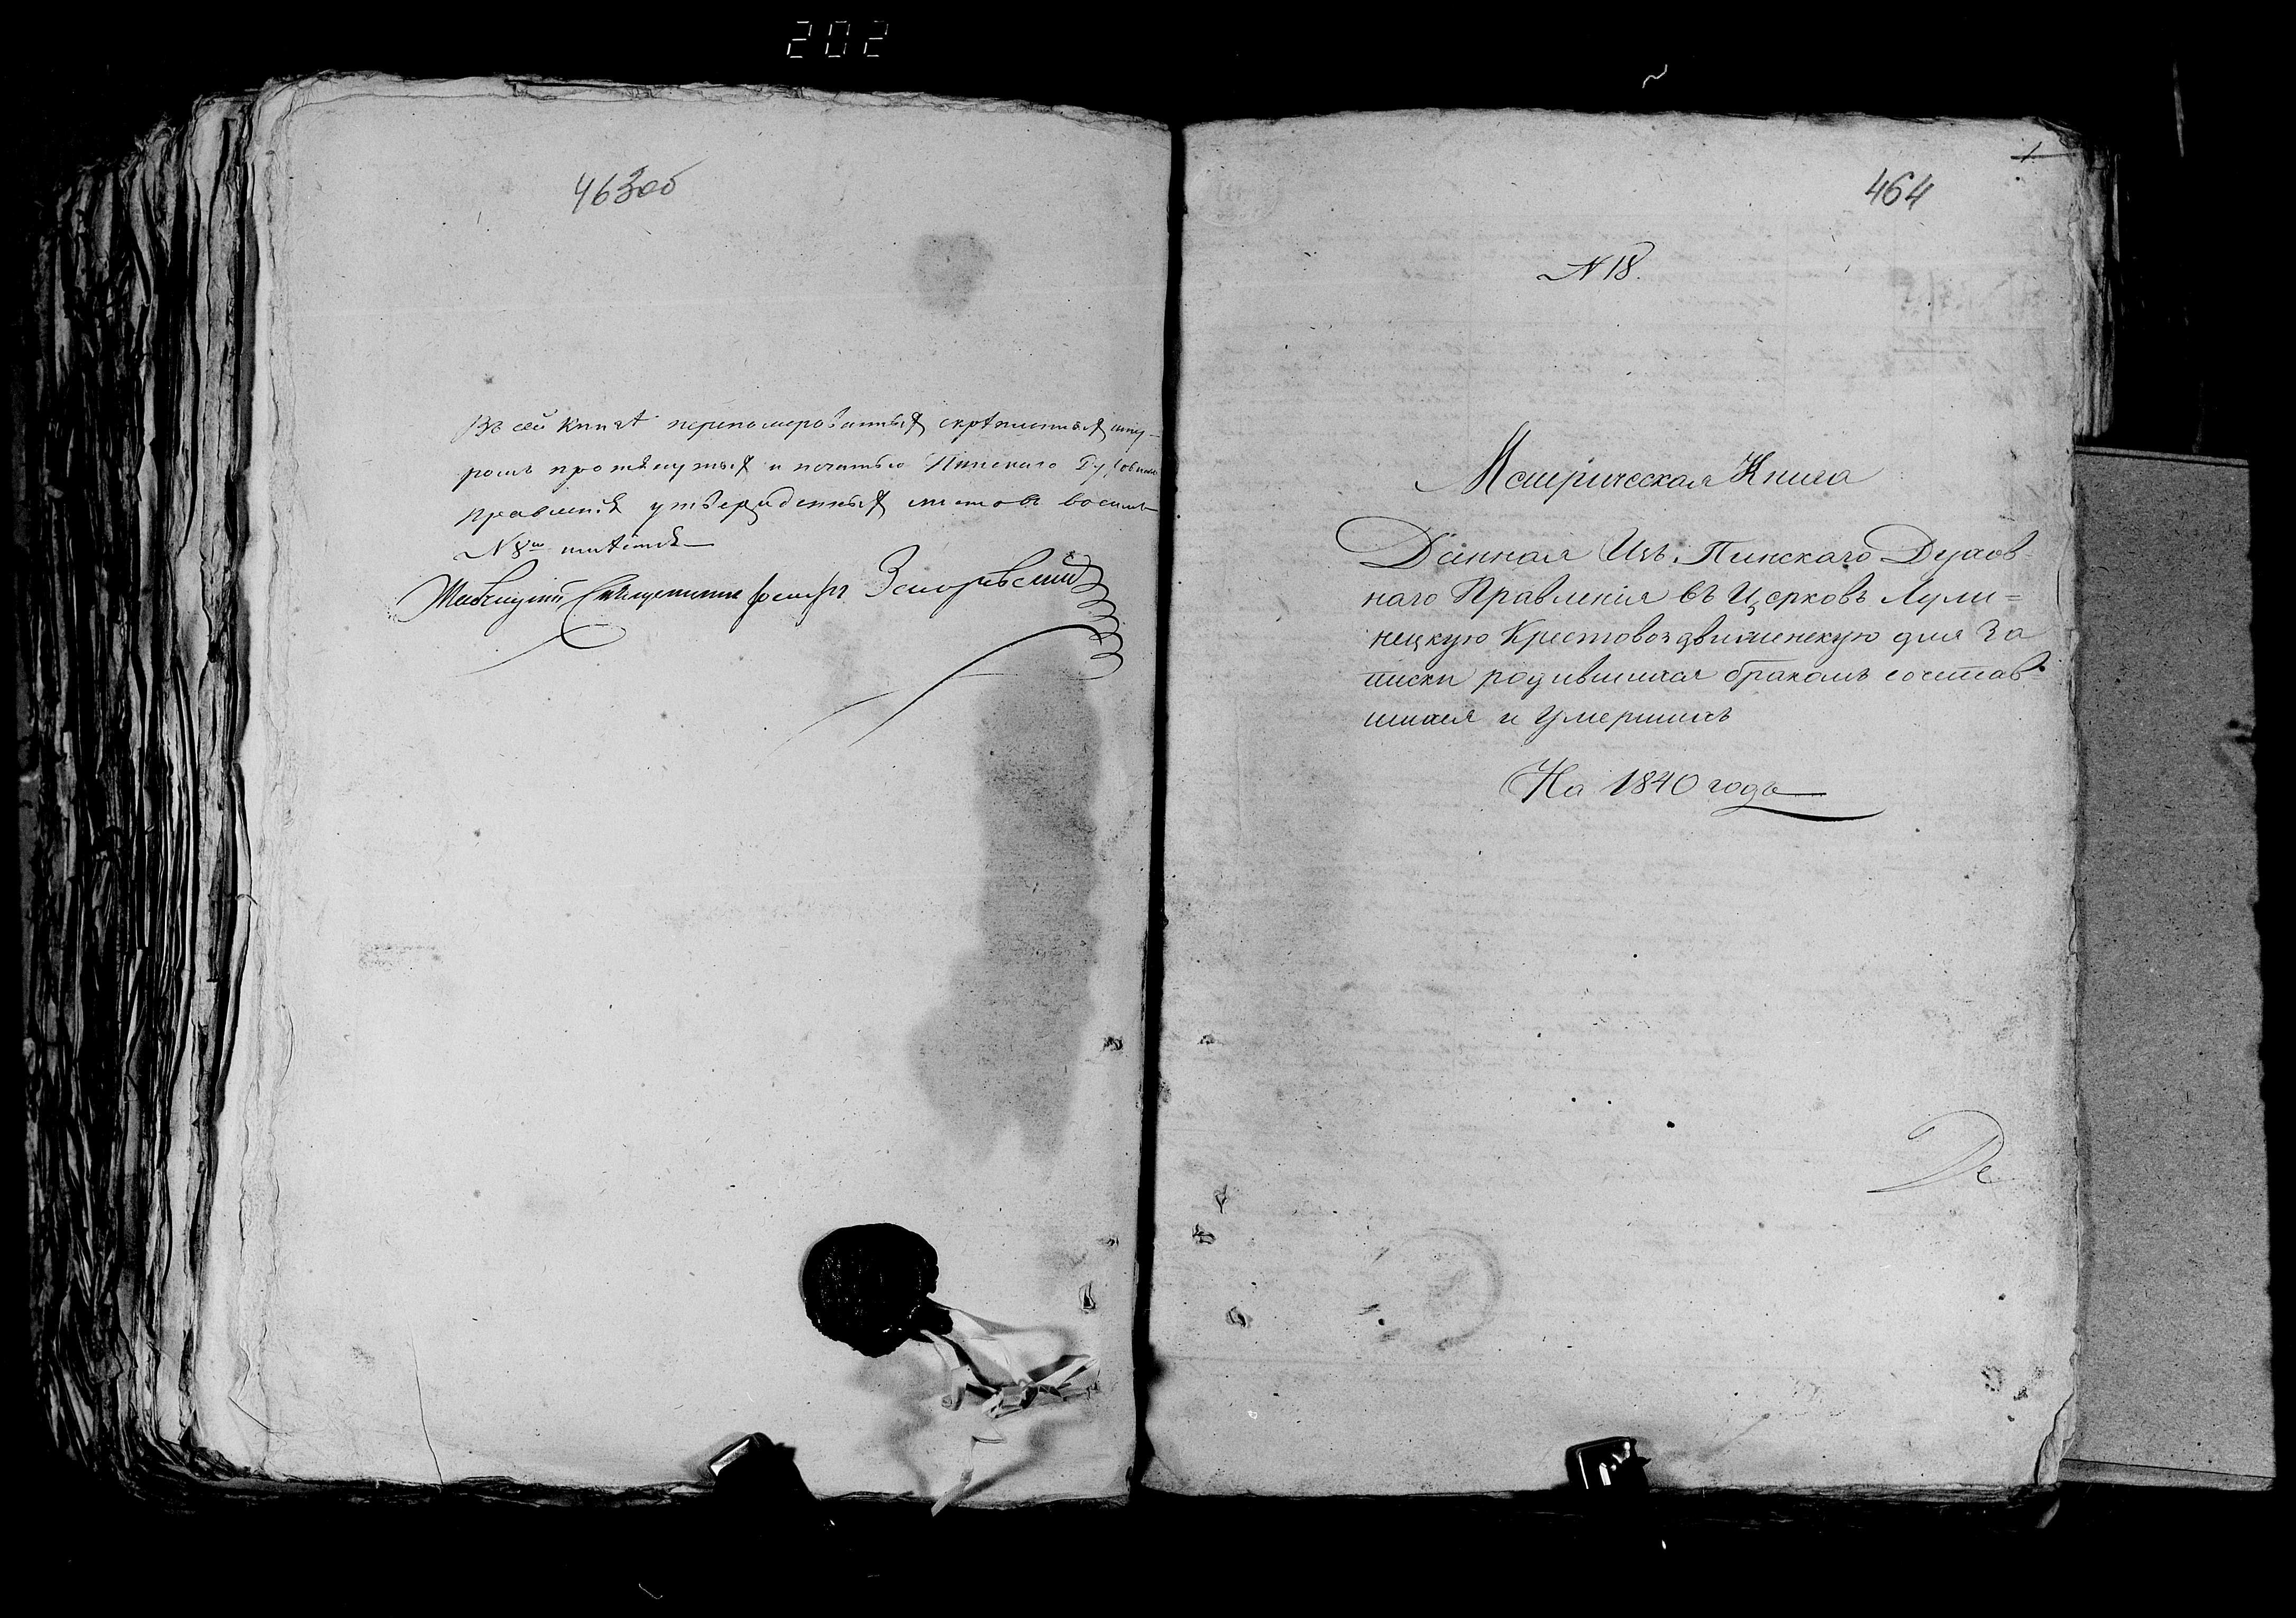 202
463об
Въ сей Книгѣ перенумерованныя скрѣпленныя шну-
ромъ протянутыя и печатью Пинскаго Духовнаго
Правленія утвержденныя листовъ восемь
N 8
Священникъ
464
1
N 18.
Метрическая Книга
Данная Изъ Пинскаго Духов
наго Правленія въ Церковь Лули=
нецкую Крестовоздвиженскую для За
писки родившихся бракомъ сочетав-
шихся и Умершихъ
На 1840 годъ